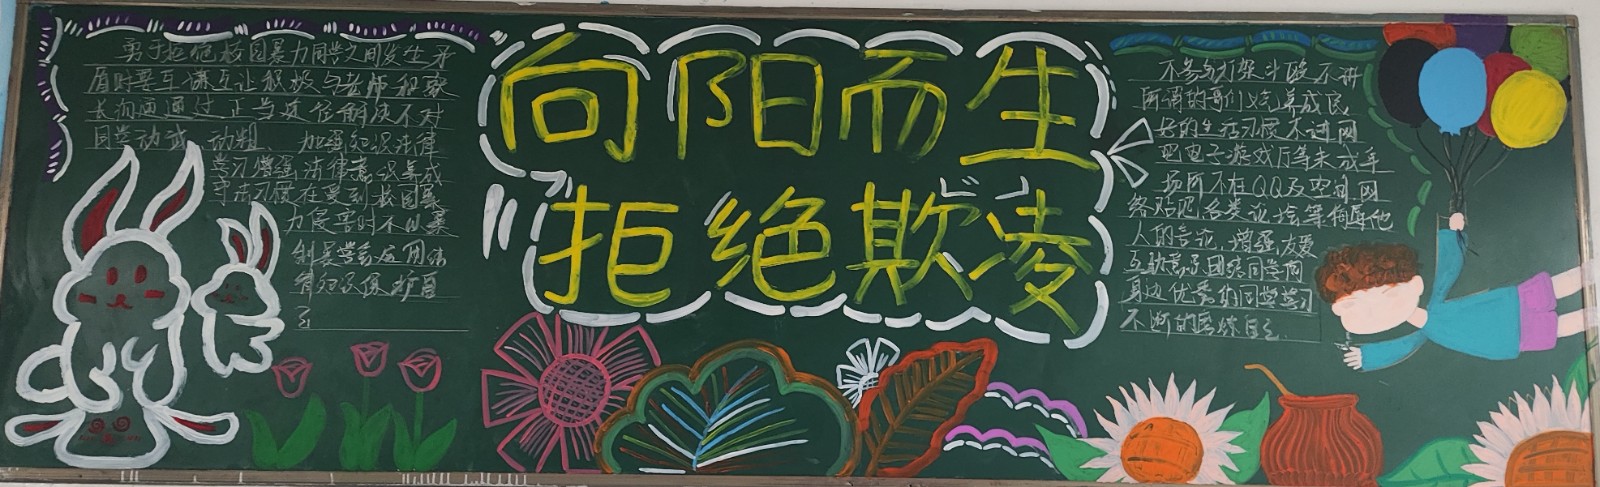 勇于拒绝校园暴力同学之间发生矛
盾时要互谦互让积极与老师和家
长沟通通过正当途径解决不对
同学动武、动粗、加强知识法律
学习增强法律意识养成
守法习惯在受到校园暴
力侵害时不以暴
制暴学会用法
保护自
己
向阳而生
拒绝欺凌
不参与打架斗殴不讲
所谓的哥们义气养成良
好的生活习惯不进网
吧电子游戏厅等未成年
场所不在QQ及空间网
络贴吧各类论坛等侮辱他
人的言论,增强友爱
互助意识团结同学向
身边优秀的同学学习
不断的磨炼自己.